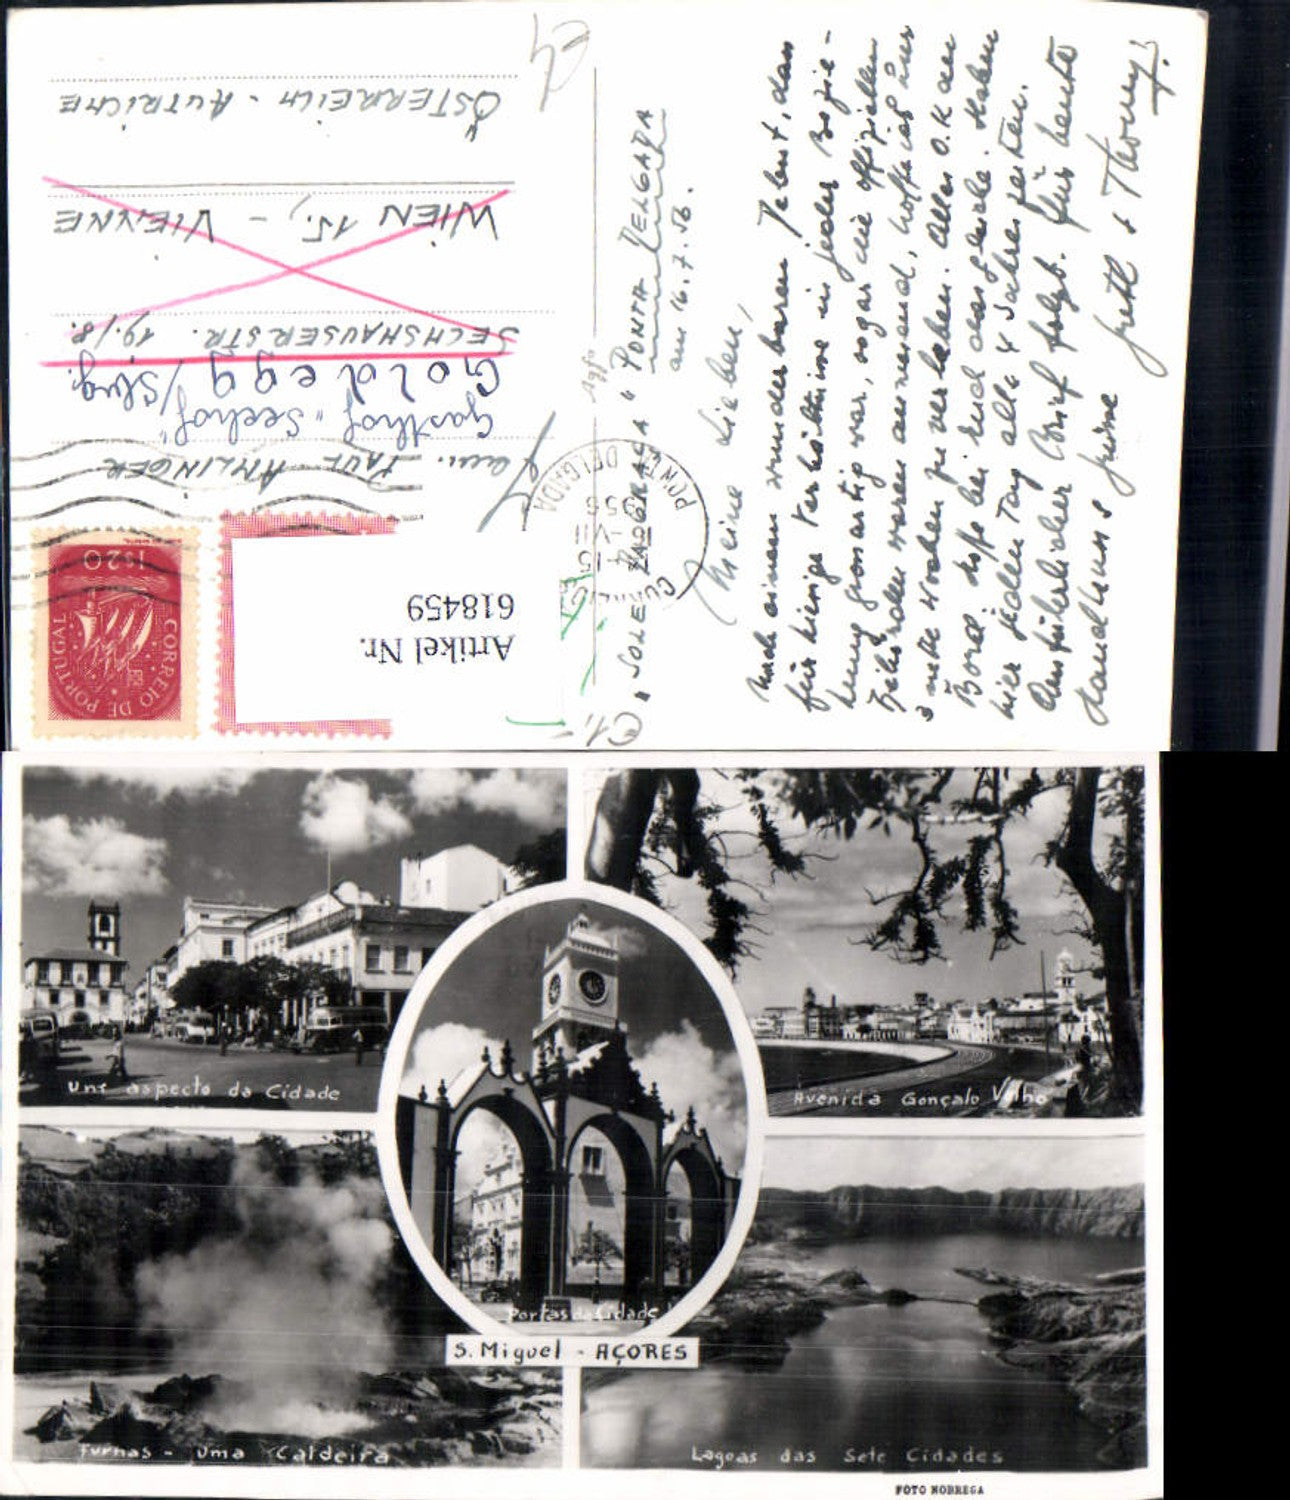 "SOLEDAD BRAGA" PONTA DELGADA
am 16.7.56.
Meine Lieben,
Nach einem wunderbaren Debut, das
für hiesige Verhältnisse in jeder Bezie-
hung grossartig war, sogar die offiziellen
Behörden waren anwesend, hoffe ich hier
3 nette Wochen zu verleben. Alles O.K. an
Bord, hoffe bei Euch dasgleiche. Haben
hier jeden Tag alle 4 Jahreszeiten.
Ausführlicher Brief folgt. Für heute
Handkuss Grüsse
Greth & Thommy
Fam. PAUL AMLINGER
Gasthof "Seehof"
Goldegg/Sbg.
SECHSHAUSERSTR. 19/8.
WIEN 15., - VIENNE
ÖSTERREICH - AUTRICHE
Agfa
CORREIOS
15-VII
1956
PONTA DELGADA
CORREIO DE PORTUGAL
1$20
Artikel Nr.
618459
Um aspecto da Cidade
Avenida Gonçalo Velho
Portas da Cidade
S. Miguel - AÇORES
Furnas - Uma Caldeira
Lagoas das Sete Cidades
FOTO NOBREGA